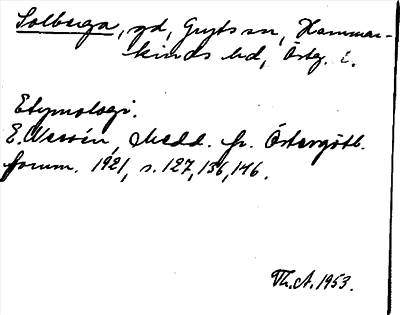 Solberga, gd, Gryts sn, Hammar-
kinds hd, Österg. l.
Etymologi.
E. Wessén, Medd. fr. Östergötl.
fornm. 1921, s. 127, 136, 146.
Th. A. 1953.